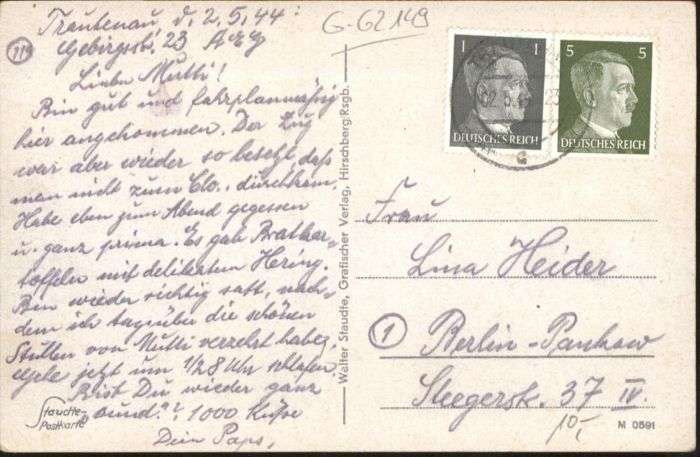 Trautenau, d. 2.5.44:
Gebirgsstr. 23 AEG
Liebe Mutti!
Bin gut und fahrplanmäßig
hier angekommen. Der Zug
war aber wieder so besetzt, daß
man nicht zum Clo., durchkam.
Habe eben zum Abend gegessen
u. ganz prima. Es gab Bratkar-
toffeln mit delikatem Hering.
Bin wieder richtig satt, nach-
dem ich tagsüber die schönen
Stullen von Mutti verzehrt habe.
Gehe jetzt um 1/28 Uhr schlafen.
Bist Du wieder ganz
1000 Küsse
Dein Paps.
Staudte-
Postkarte
Walter Staudte, Grafischer Verlag, Hirschberg/Rsgb.
G-G2149
1 1
DEUTSCHES REICH
5 5
DEUTSCHES REICH
Frau
Lina Heider
1 Berlin-Pankow
Steegerstr. 37 IV.
10,-
M 0591